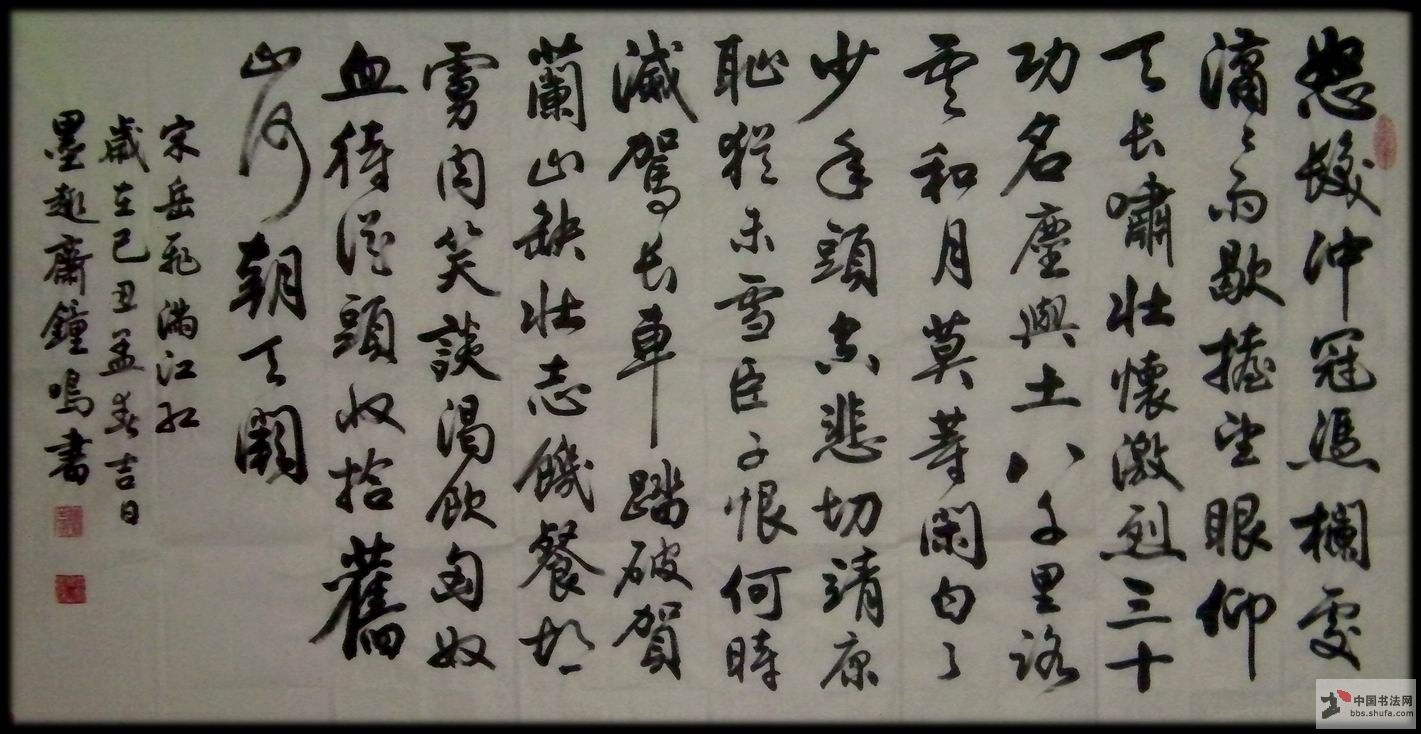 怒髮沖冠憑欄處
瀟々雨歇擡望眼仰
天长嘯壯懷激烈三十
功名塵與土八千里路
雲和月莫等閑白了
少年頭空悲切靖康
恥猶未雪臣子恨何時
滅駕长車踏破賀
蘭山缺壯志饑餐胡
虜肉笑談渴飲匈奴
血待從頭收拾舊
山河朝天闕
宋岳飛滿江紅
歲在己丑孟春吉日
墨趣齋鐘鳴書
中国书法网
bbs.shufa.com